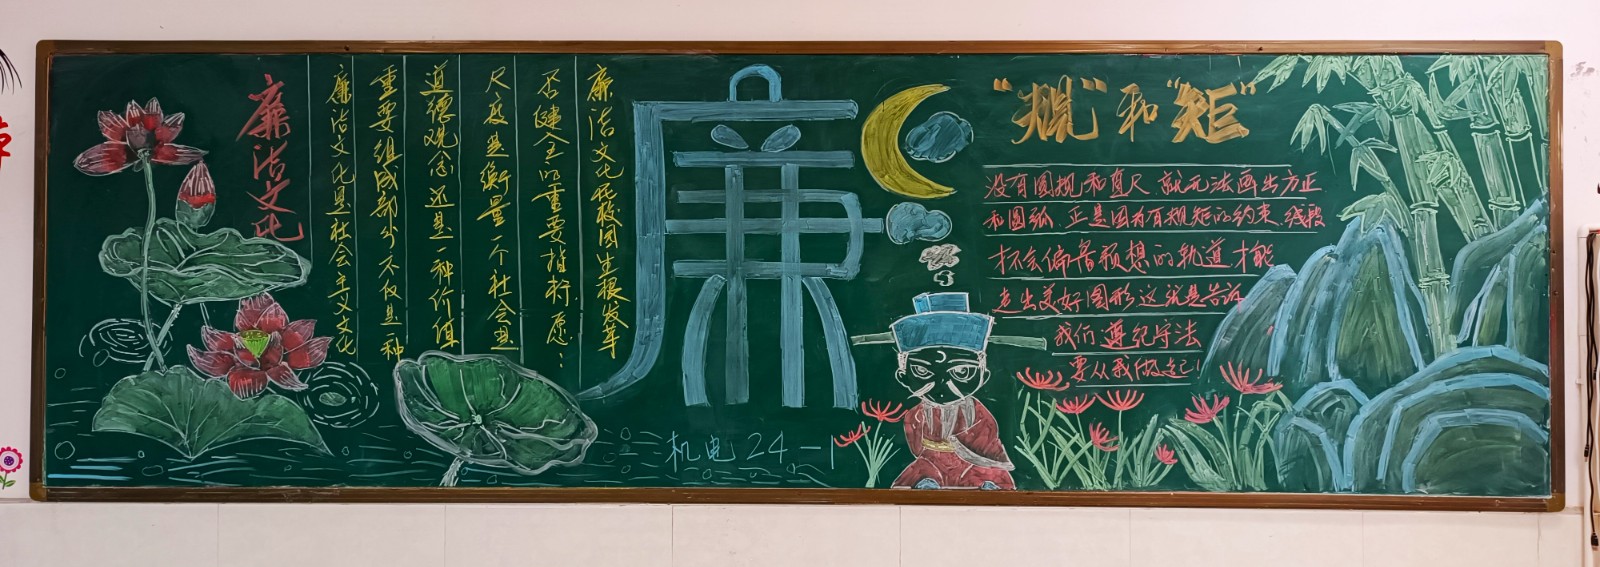 廉洁文化
廉洁文化是社会主义文化
重要组成部分不仅是一种
道德观念还是一种价值
尺度是衡量一个社会是
否健全的重要指标,愿:
廉洁文化在校园生根发芽
廉
机电24-1
“规”和“矩”
没有圆规和直尺 就无法画出方正
和圆弧.正是因为有规矩的约束,线段
才不会偏离预想的轨道 才能
走出美好图形 这就是告诉
我们 遵纪守法
要从我做起!